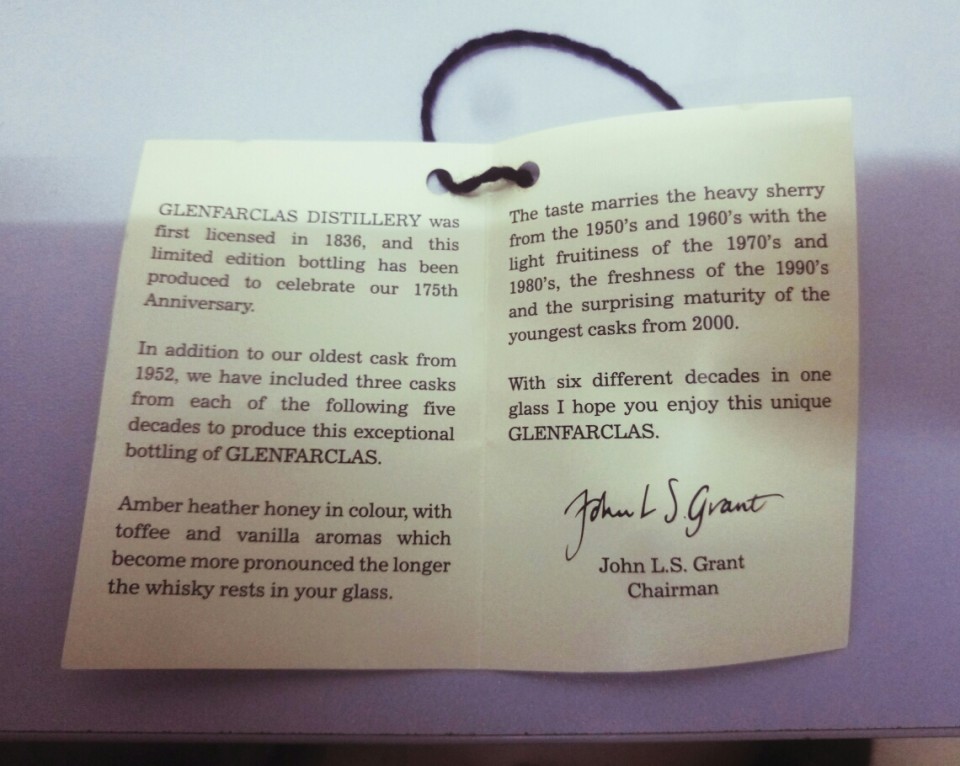 GLENFARCLAS DISTILLERY was
first licensed in 1836, and this
limited edition bottling has been
produced to celebrate our 175th
Anniversary.
In addition to our oldest cask from
1952, we have included three casks
from each of the following five
decades to produce this exceptional
bottling of GLENFARCLAS.
Amber heather honey in colour, with
toffee and vanilla aromas which
become more pronounced the longer
the whisky rests in your glass.
The taste marries the heavy sherry
from the 1950's and 1960's with the
light fruitiness of the 1970's and
1980's, the freshness of the 1990's
and the surprising maturity of the
youngest casks from 2000.
With six different decades in one
glass I hope you enjoy this unique
GLENFARCLAS.
John L S. Grant
John L.S. Grant
Chairman